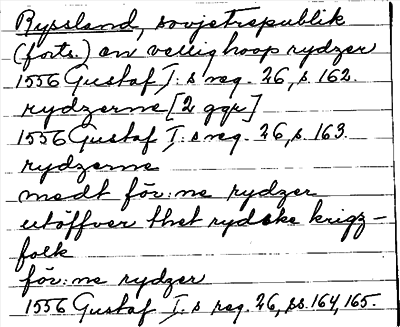 Ryssland, sovjetrepublik
(forts.) en vellig hoop rydzer
1556 Gustaf I:s reg. 26, s. 162.
rydzerne [2 ggr]
1556 Gustaf I:s reg. 26, s. 163.
rydzerne
medt för:ne rydzer
utöffver thet rydske krigz-
folk
för:ne rydzer
1556 Gustaf I:s reg. 26, ss. 164, 165.